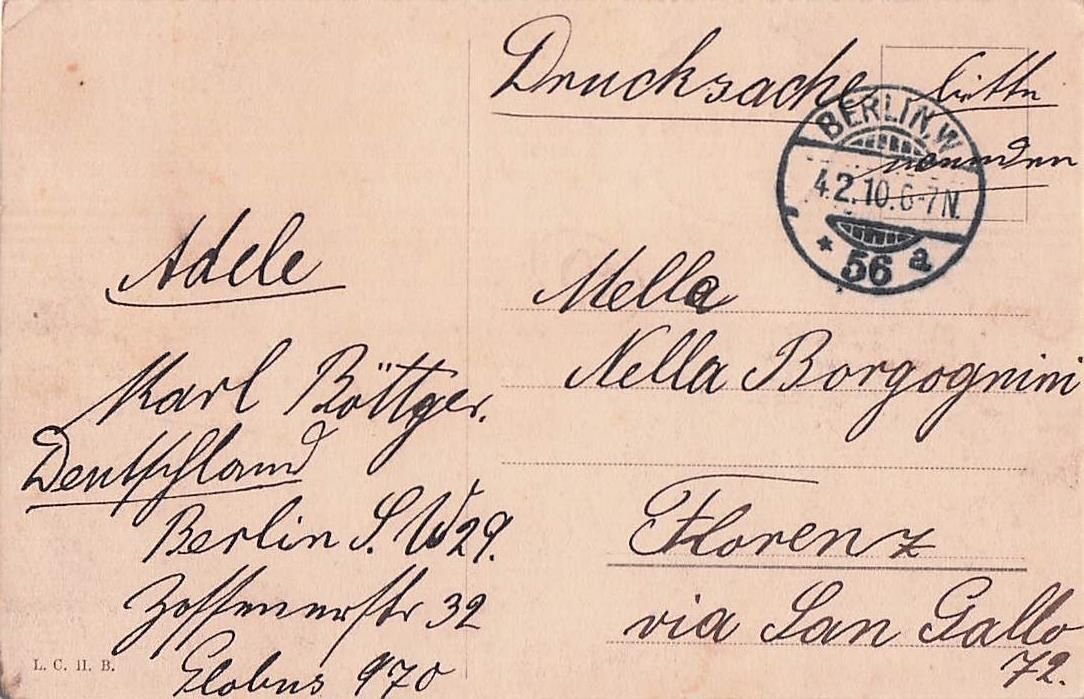 Drucksache bitte
wenden
BERLIN, W
4.2.10.6-7N.
* 56 a
Adele
Karl Böttger.
Deutschland
Berlin S. W 29.
Zossenerstr 32
Globus 970
L. C. II. B.
Mella
Nella Borgognini
Florenz
via San Gallo
72.